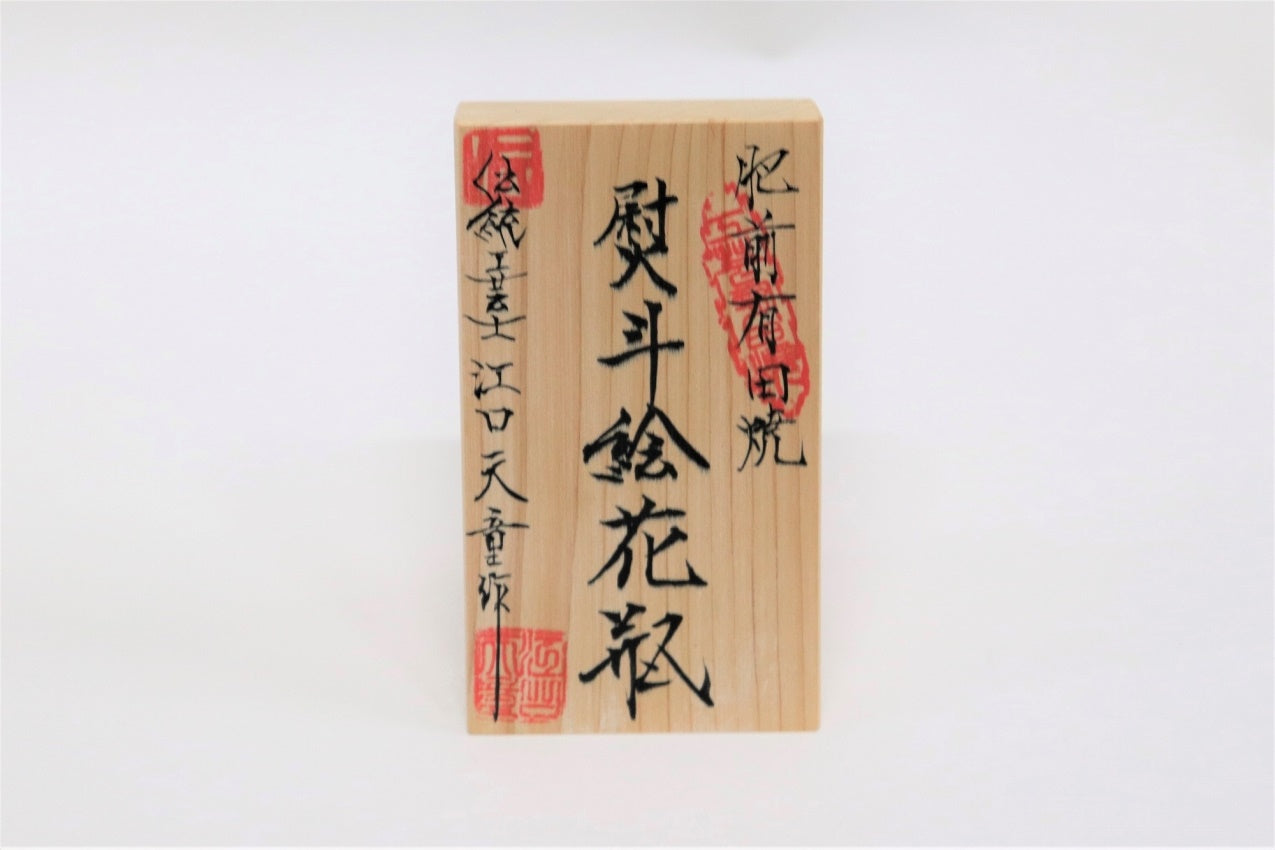 肥前有田焼
熨斗絵花瓶
伝統工芸士 江口天童作
江口天童